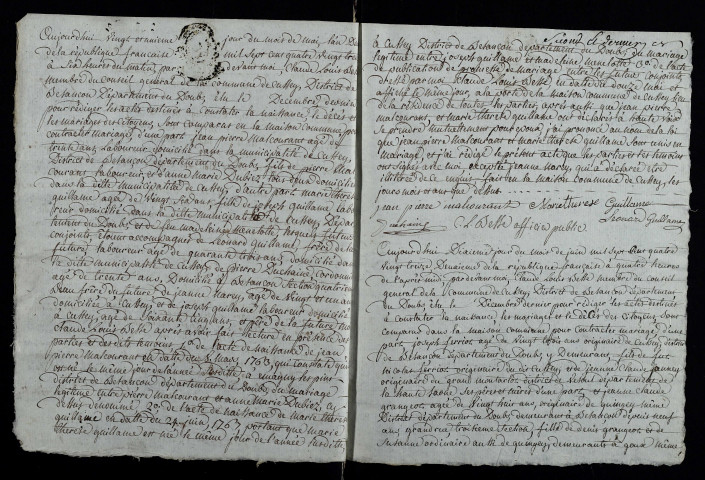 Aujourdhui vingt et unieme jour du mois de mai, l'an deux
de la republique francaise mil sept cent quatre vingt treize
à six heures du matin, par devant moi, Claude Louis
membre du Conseil general de la commune de Cussey, District de
Besançon Département du Doubs élu le Decembre dernier
pour rédiger les actes destinés à Constater la naissance, le décès et
les mariages des Citoyens, sont comparus en la maison commune pour
contracter mariage d'une part jean pierre malcourant agé de
trente ans, Laboureur domicilié dans la municipalité de Cussey,
District de Besançon, département du Doubs, fils de pierre mal
courant laboureur et d'anne marie Dubiez tous deux domiciliés
dans la ditte municipalité de Cussey, d'autre part marie therese
guillame agée de vingt six ans, fille de joseph guillame labou
reur domicilié dans la ditte municipalité de Cussey, Dépar
tement du Doubs, et de feu lesquels futurs
conjoints, étoient accompagnés de Leonard Guillame, frère de la
future, laboureur agé de quarante trois ans, domicilié dans
la ditte municipalité de Cussey, de pierre Duchaine, Cordonnier
agé de trente ans, Domicilié à Besançon section quatrieme
Beau frère du futur, de jeanne Marey, agée de vingt et un ans
domiciliée à Cussey, et de joseph guillame laboureur domicilié
à Cussey, agé de soixante cinq ans, et père de la future, moi
claude Louis après avoir fait lecture en présence des
parties et des dits temoins 1°. de l'acte de naissance de jean
pierre malcourant en datte du mars 1763, qui constate qu'il
est né le même jour de l'année
district de Besançon département du Doubs, du mariage
légitime entre pierre malcourant et anne marie Dubiez, cy
dessus denommé 2°. de l'acte de naissance de marie therese
guillame en datte du juin 1767 portant que marie
therese guillame est née le même jour de l'année susditte
à Cussey District de Besançon département du Doubs du mariage
légitime entre joseph guillame et 3°. de l'acte
de publication de promesse de mariage entre les futurs conjoints,
dressé par moi claude Louis le datte du douze mai et
affiché le même jour, à la porte de la maison commune de Cussey, lieu
de la résidence de toutes les parties, après aussi que jean pierre
malcourant, et marie therese guillame ont déclarés à haute voix
se prendre mutuellement pour époux, j'ai prononcé au nom de la loi
que jeanne pierre malcourant, et marie therese guillame sont unis en
mariage, et j'ai rédigé le présent acte que les parties et les temoins
ont signés avec moi, excepté jeanne marey, qui a déclaré être
illitérée de ce enquis, fait en la maison commune de Cussey, les
jour, mois et an que dessus.
jean pierre malcourant Marie therese Guillame
Duchaine officier public Leonard Guillame
Aujourdhui Dixieme jour du mois de juin mil sept cent quatre
vingt treize Deuxieme de la republique française à quatre heures
de l'après midi, par devant moi claude Louis membre du Conseil
general de la Commune de Cussey District de Besançon département
du Doubs élu le Decembre dernier pour rédiger les actes destinés
à Constater la naissance, les mariages et le Décès des Citoyens sont
comparus dans la maison commune pour Contracter mariage, d'une
part, joseph ferriot agé de vingt trois ans originaire de Cussey, district
de Besançon département du Doubs, y Demeurant, fils de feu
nicolas ferriot originaire du dit Cussey et de jeanne claude
originaire du grand district de Vesoul département de
la haute Saone, ses père et mère d'une part, et jeanne claude
grangeot agée de vingt huit ans, originaire de quingey même
District département du Doubs demeurante à Besançon depuis neuf
ans, grande rue troisieme section, fille de denis grangeot et de
Susanne ordinaire aussi de quingey, demeurants à même